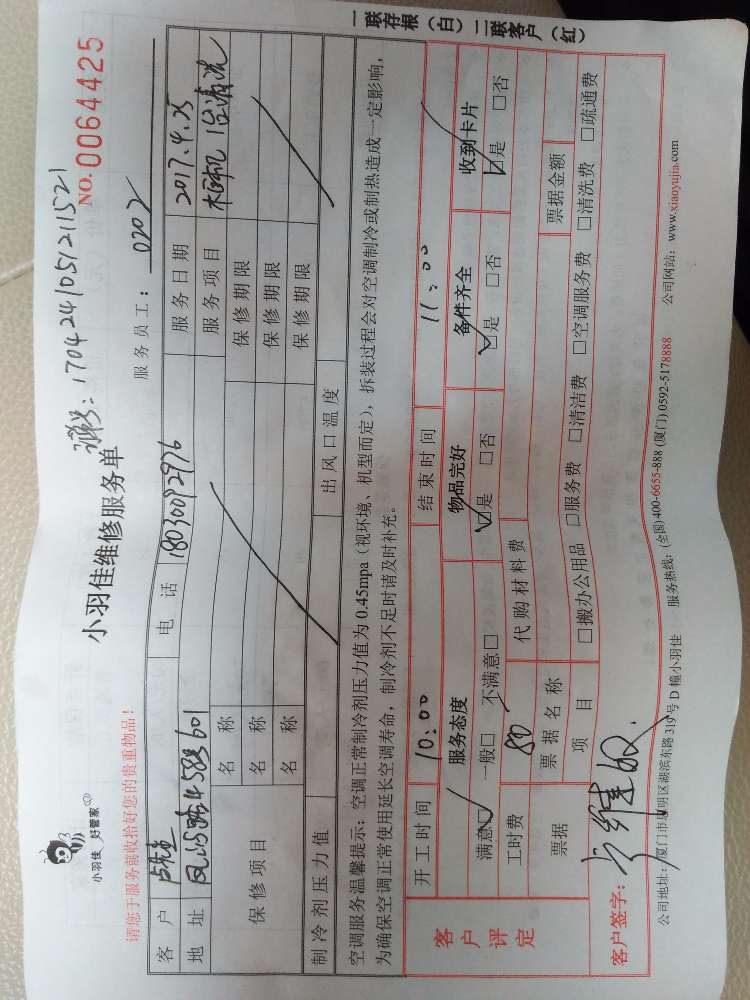 小羽佳 好管家
请您于服务前收拾好您的贵重物品！
小羽佳维修服务单
170424105121521
NO.0064425
服务员工： 0202
客户 卢先生 电话 18030092976 服务日期 2017.4.25
地址 601 服务项目
保修项目 名称 保修期限
名称 保修期限
名称 保修期限
制冷剂压力值 出风口温度
空调服务温馨提示：空调正常制冷剂压力值为 0.45mpa（视环境、机型而定），拆装过程会对空调制冷或制热造成一定影响，
为确保空调正常使用延长空调寿命，制冷剂不足时请及时补充。
客户评定
开工时间 10:00 结束时间 11:00
服务态度 物品完好 备件齐全 收到卡片
满意□ 一般□ 不满意□ □是 □否 □是 □否 □是 □否
工时费 80 代购材料费
票据 票据名称 票据金额
项目 □搬办公用品 □服务费 □清洁费 □空调服务费 □清洗费 □疏通费
客户签字：
公司地址：厦门市思明区湖滨东路 319号 D 幢小羽佳 服务热线：(全国)400-6655-888 (厦门)0592-5178888 公司网站：www.xiaoyujia.com
一联存根（白）二联客户（红）